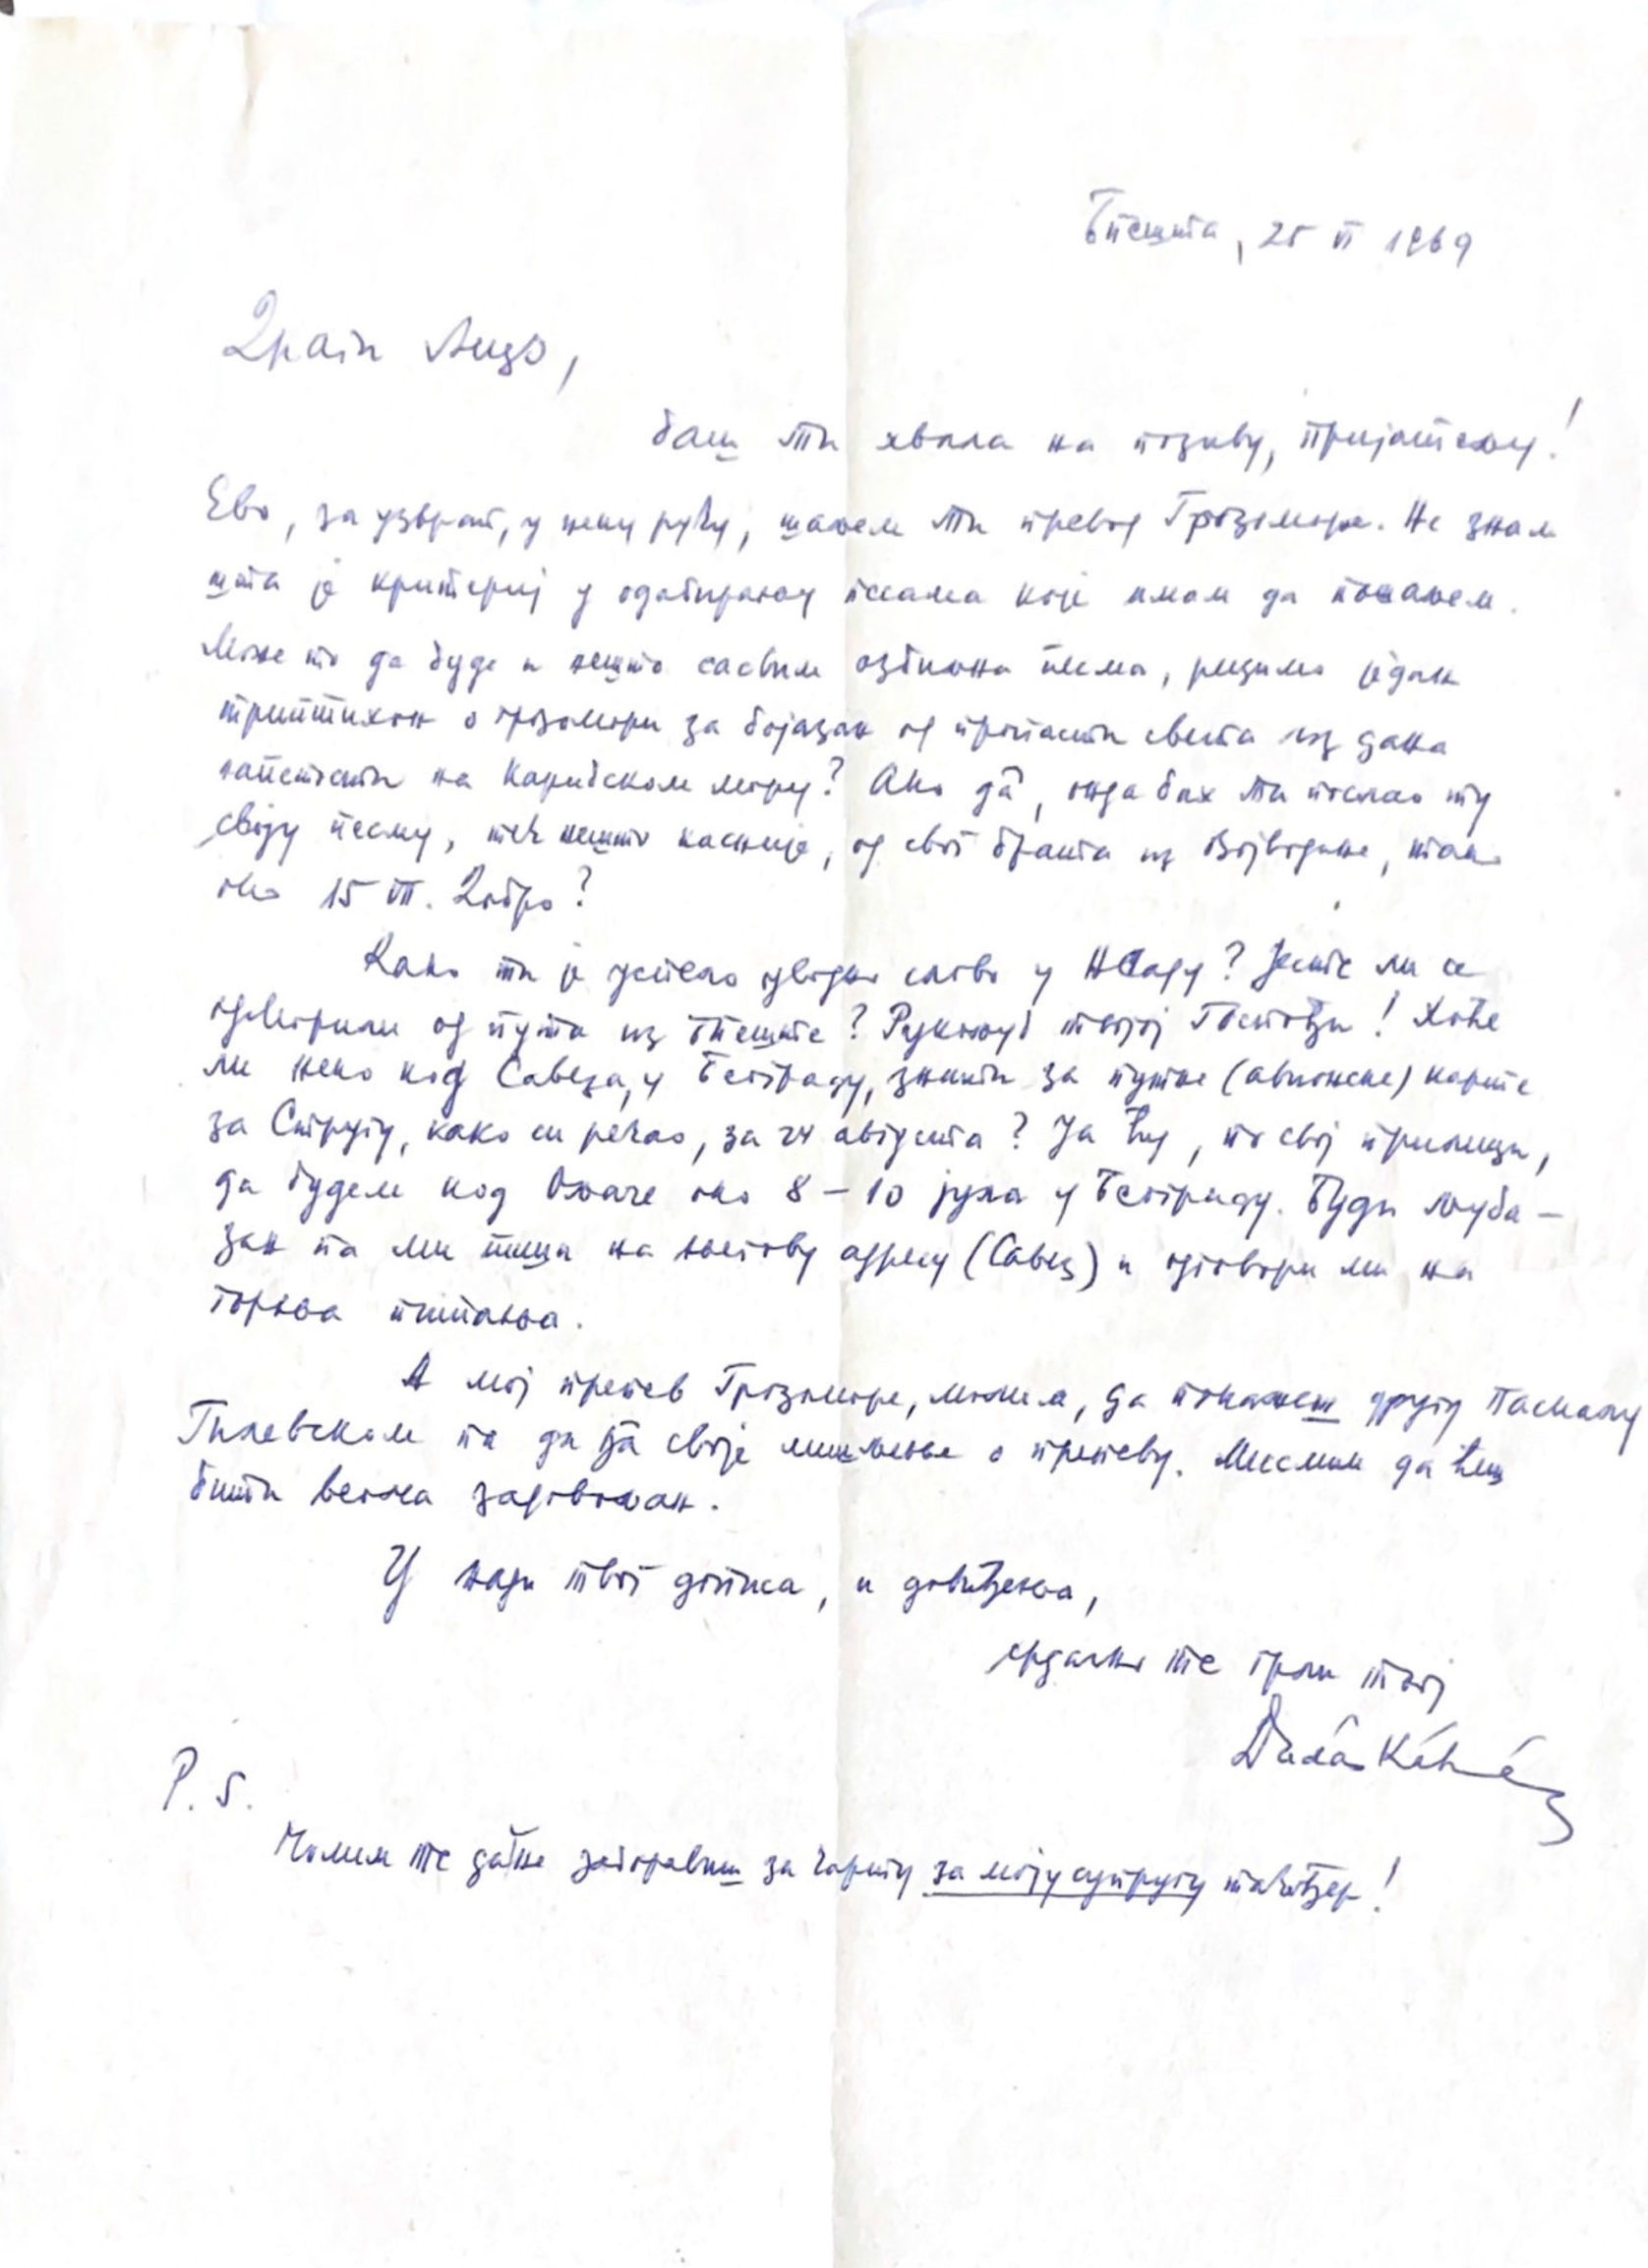 Бпешта, 25 VI 1969
Драги Ацо,
баш ти хвала на позиву, пријатељу!
Ево, за узврат, у неку руку, шаљем ти превод Грозоморе. Не знам
шта је критериј у одабирању песама које имам да пошаљем.
Може то да буде и нешто сасвим озбиљна песма, рецимо један
триптихон о грозомори за бојазан од пропасти света из дана
напетости на Карибском мору? Ако да, онда бих ти послао ту
своју песму, тек нешто касније, од свог брата из Војводине, тако
око 15 VII. Добро?
Како ти је успело уводно слово у НСаду? Јесте ли се
одморили од пута из Бпеште? Рукољуб твојој Госпођи! Хоће
ли неко код Савеза, у Београду, знати за путне (авионске) карте
за Стругу, како си рекао, за 24 августа? Ја ћу, по свој прилици,
да будем код Ољаче око 8 – 10 јула у Београду. Буди љуба–
зан па ми пиши на његову адресу (Савез) и одговори ми на
горња питања.
А мој препев Грозоморе, молим, да покажеш другу Паскалу
Гилевском па да да своје мишљење о препеву. Мислим да ћеш
бити веома задовољан.
У нади твог дописа, и довиђења,
срдачно те грли твој
Dudás Kálmán
P. S.
Молим те да не заборавиш за карту за моју супругу такођер!